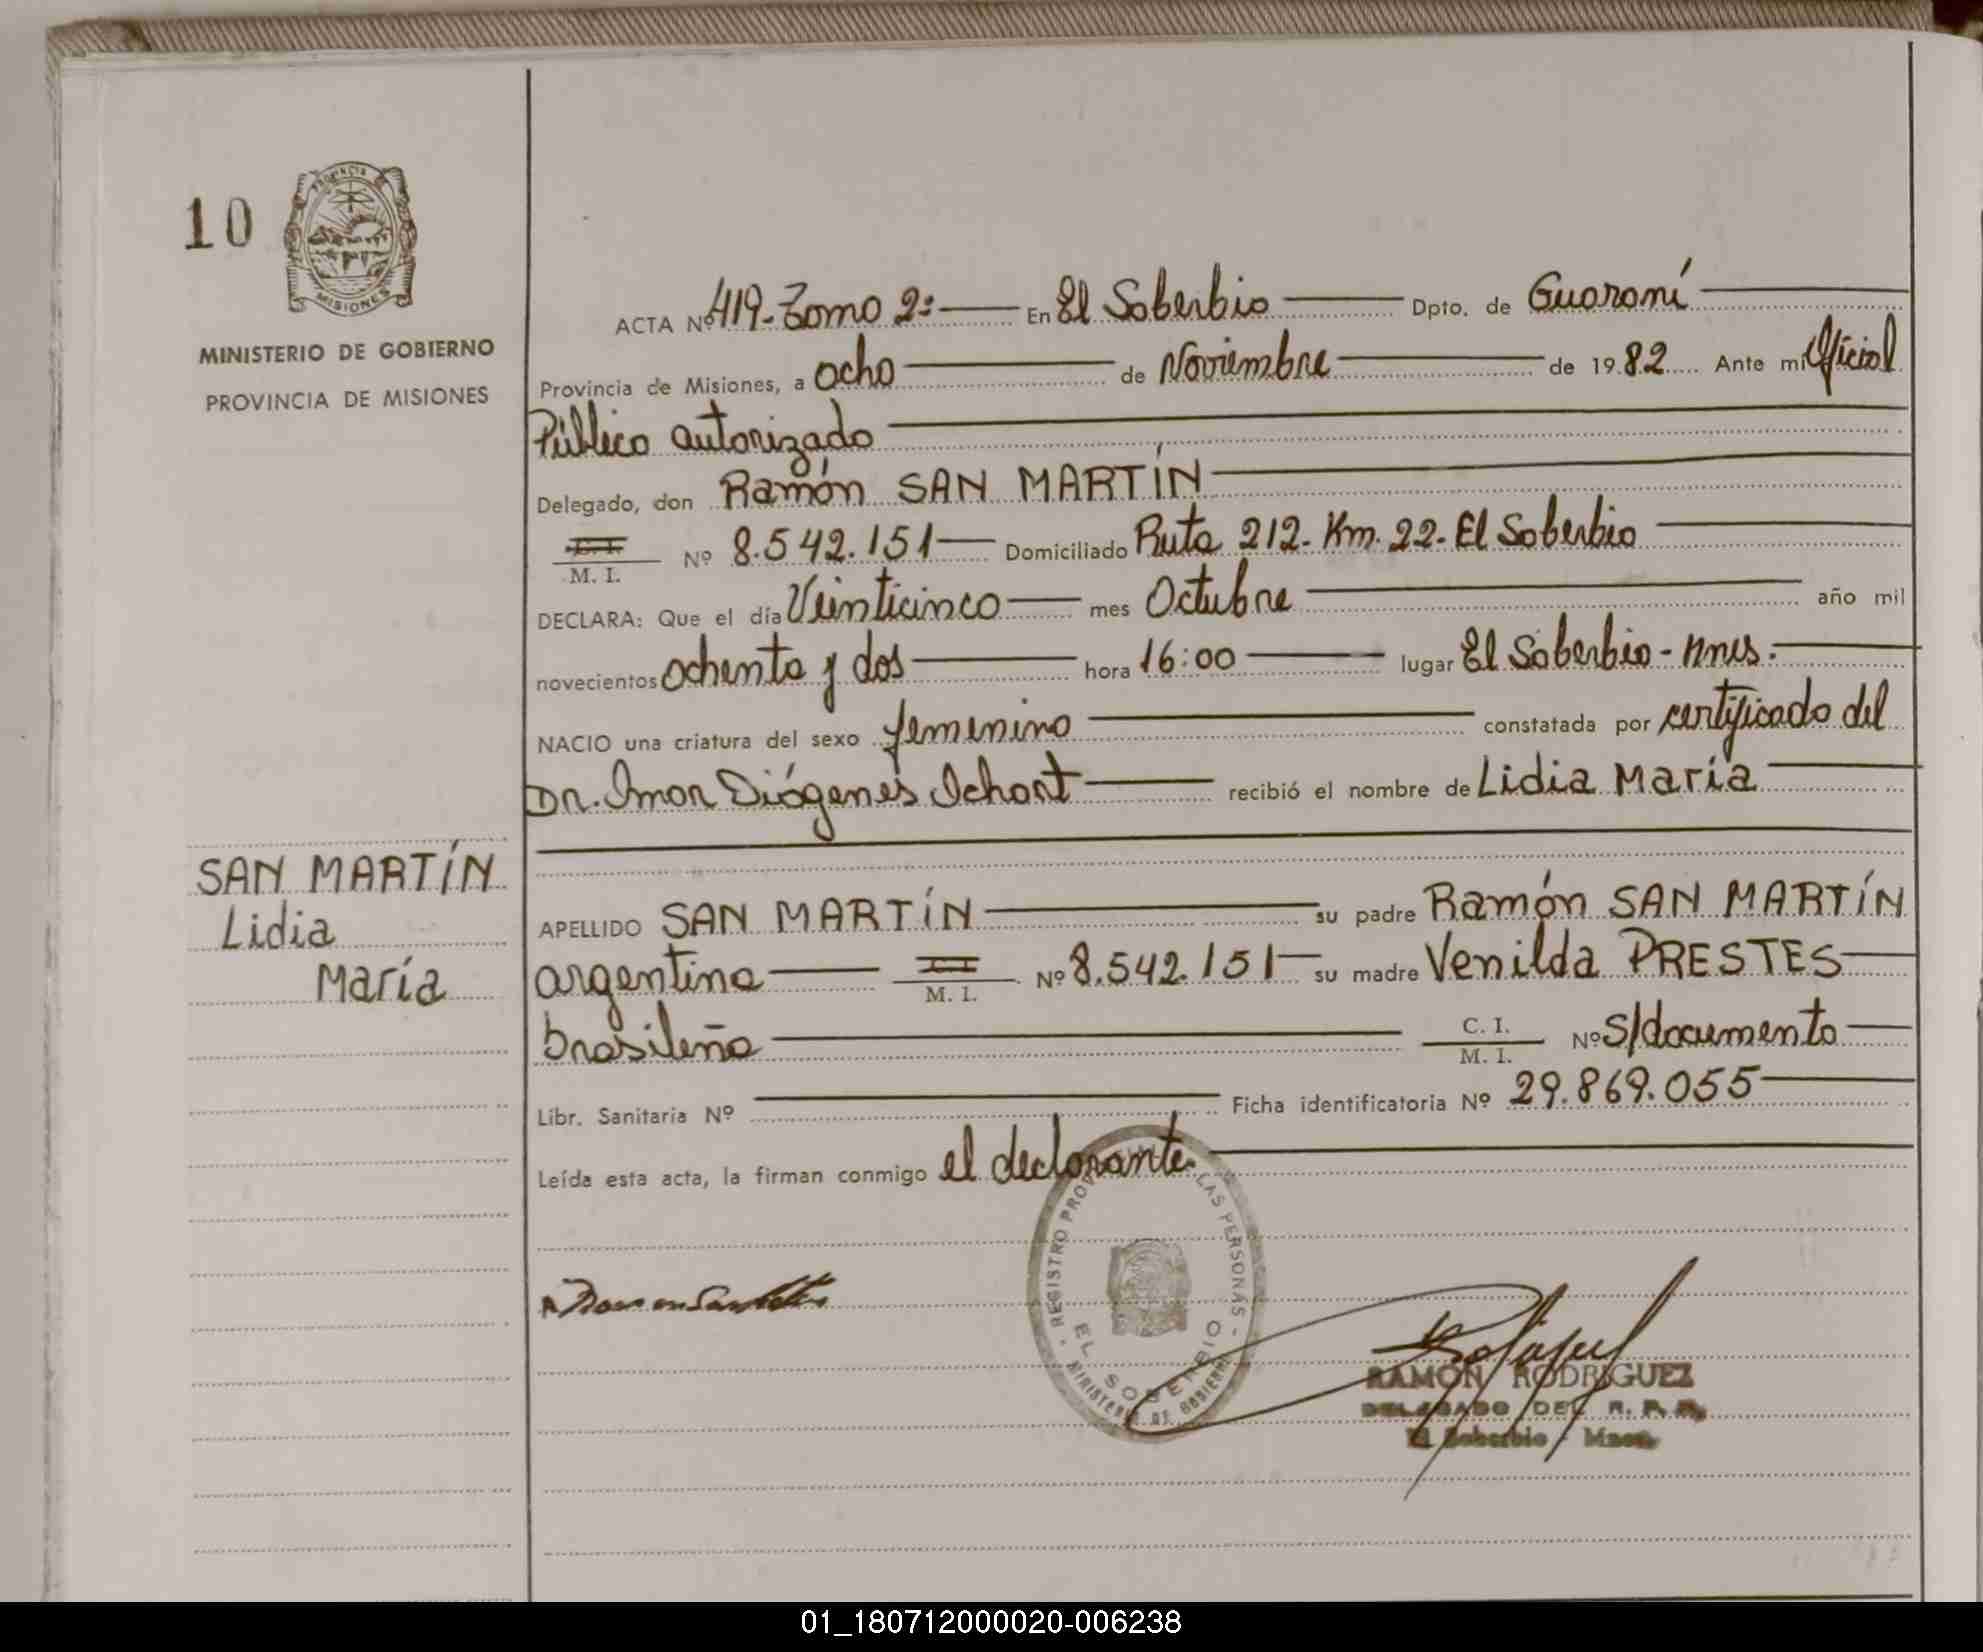 10
PROVINCIA DE
MISIONES
MINISTERIO DE GOBIERNO
PROVINCIA DE MISIONES
ACTA Nº 419-Tomo 2º En El Soberbio Dpto. de Guaraní
Provincia de Misiones, a ocho de Noviembre de 1982 Ante mi Oficial
Público autorizado
Delegado, don Ramón SAN MARTÍN
C. I.
M. I. Nº 8.542.151 Domiciliado Ruta 212. Km. 22. El Soberbio
DECLARA: Que el día Veinticinco mes Octubre año mil
novecientos ochenta y dos hora 16:00 lugar El Soberbio - Mnes.
NACIO una criatura del sexo femenino constatada por certificado del
Dr. Omar Diógenes Ichart recibió el nombre de Lidia María
SAN MARTÍN
Lidia
María
APELLIDO SAN MARTÍN su padre Ramón SAN MARTÍN
argentino M. I. Nº 8.542.151 su madre Venilda PRESTES
brasileña C. I. M. I. Nº S/documento
Libr. Sanitaria Nº Ficha identificatoria Nº 29.869.055
Leída esta acta, la firman conmigo el declarante.
REGISTRO LAS PERSONAS
EL SOBERBIO
MINISTERIO DE GOBIERNO
RAMON RODRIGUEZ
DELEGADO DEL R. P. P.
El Soberbio - Mnes.
01_180712000020-006238